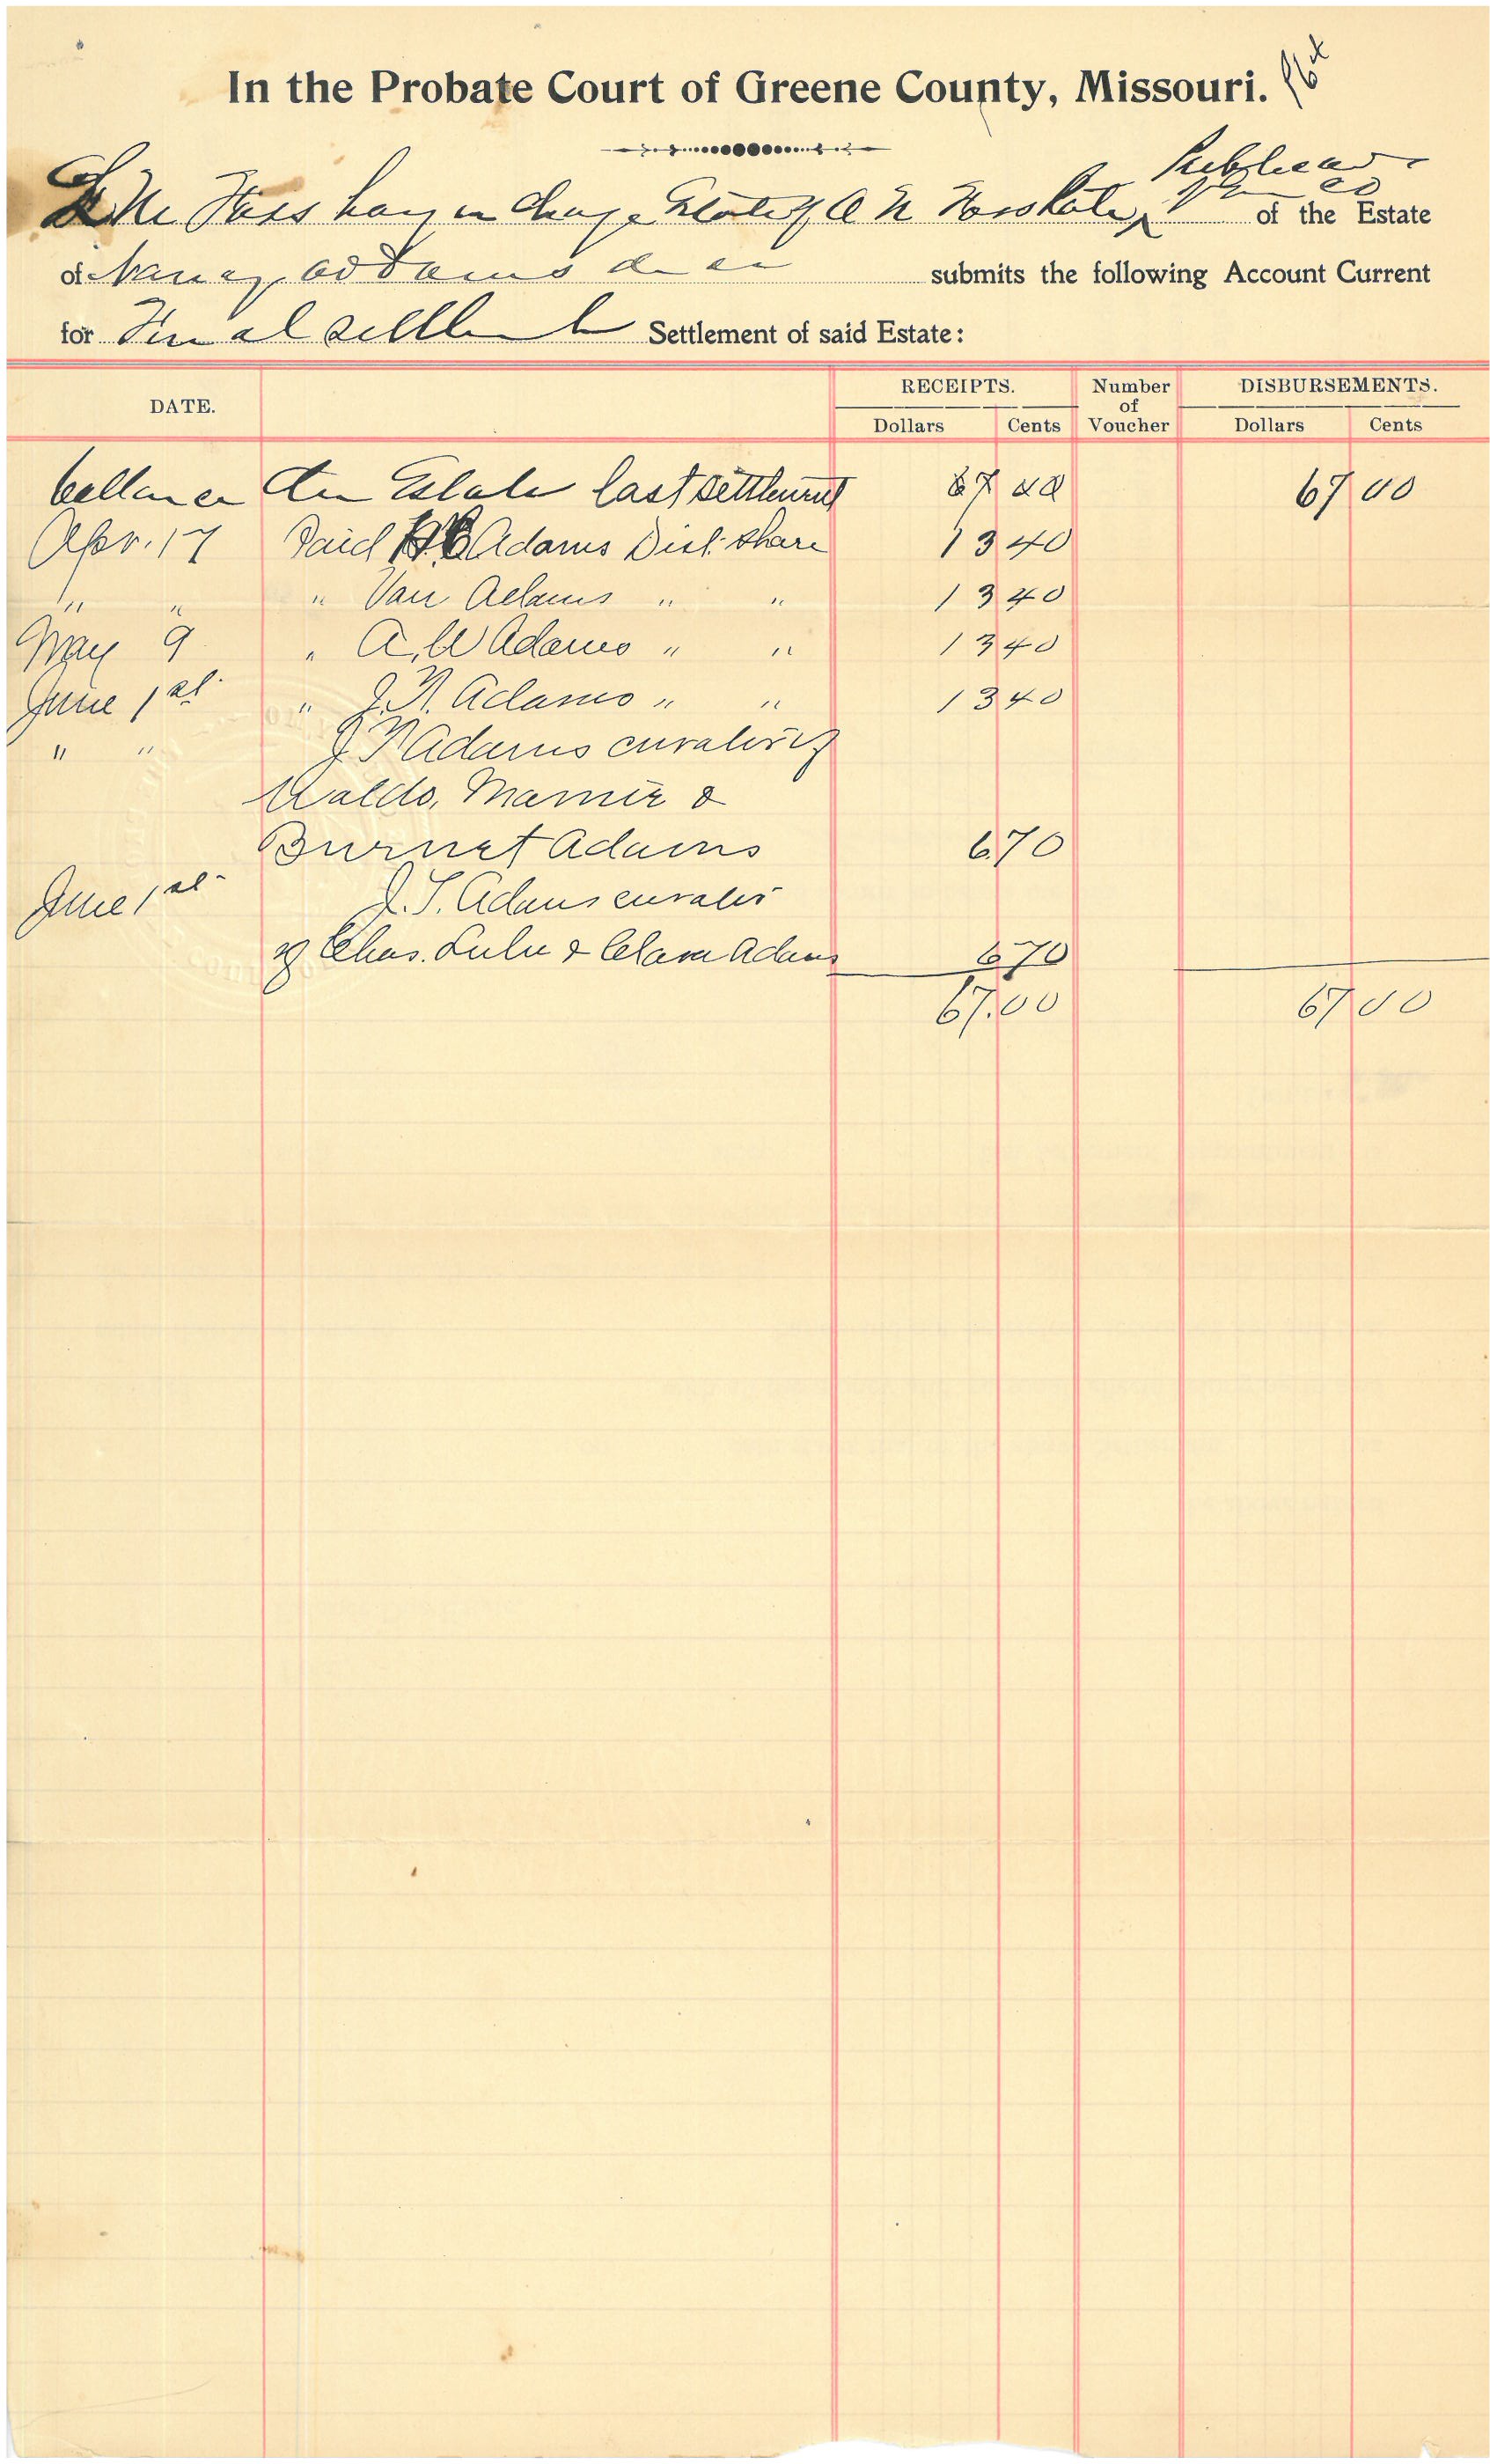 In the Probate Court of Greene County, Missouri.
having in charge Estate of A N of the Estate
of Nancy Addams submits the following Account Current
for Final Settlement of said Estate:
DATE. RECEIPTS. Number of Voucher DISBURSEMENTS.
Dollars Cents Dollars Cents
Estate last settlement 67 00 67 00
Apr. 17 Paid Adams Dist. share 13 40
" " " Van Adams " " 13 40
May 9 " A. W Adams " " 13 40
June 1st " J. N. Adams " " 13 40
" " J N Adams curator of
Waldo, Mamie &
Burnet Adams 6.70
June 1st J. T. Adams curator
of Chas. Lulu & Clara Adams 6 70
67.00 67 00